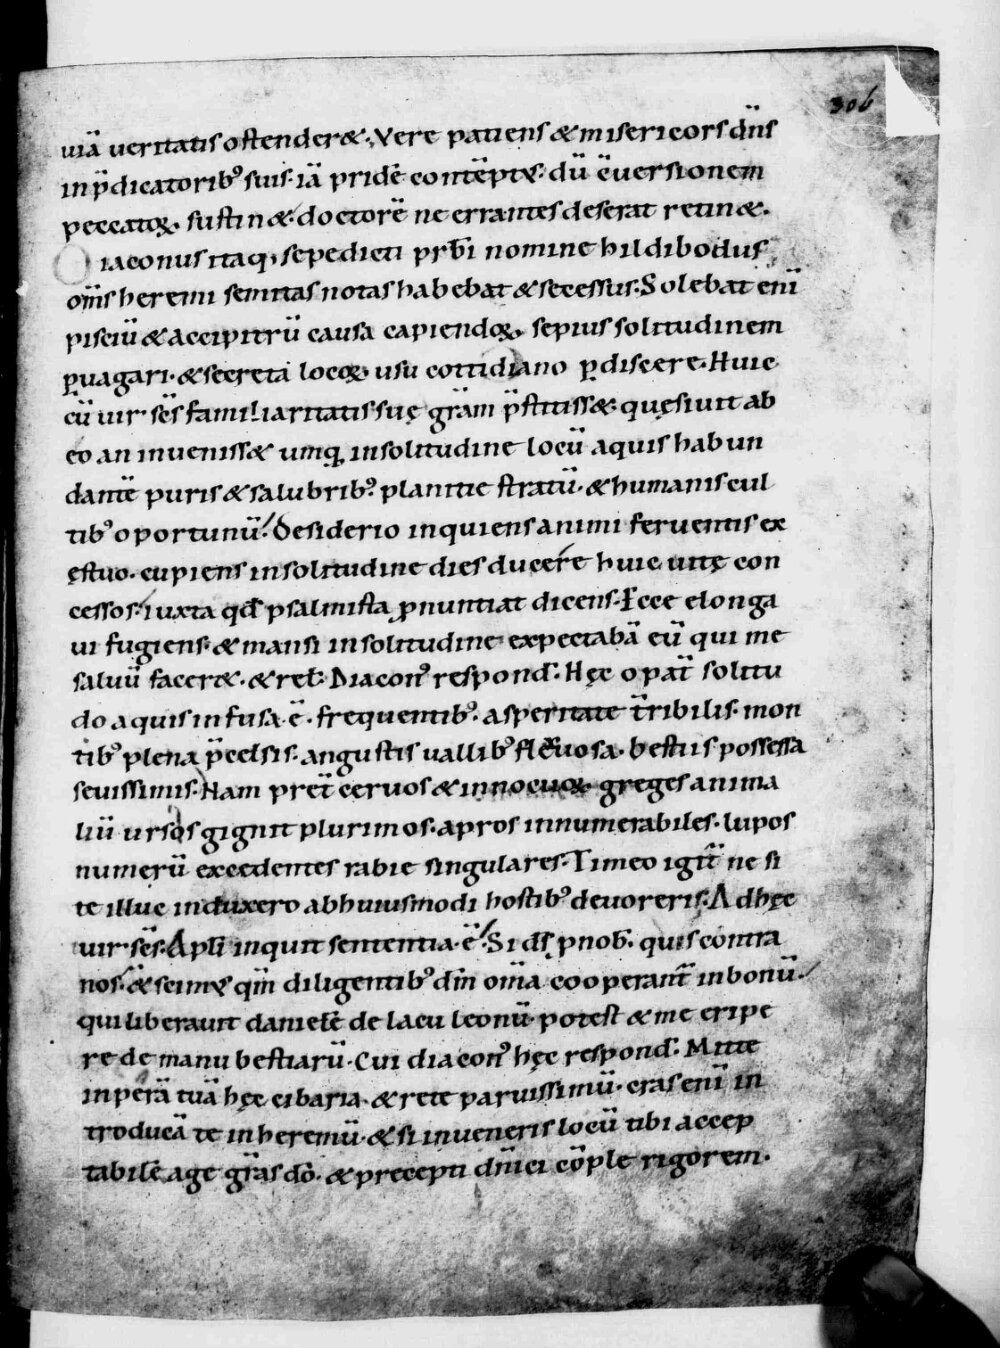 306
uiā ueritatis ostenderet. Vere patiens & misericors dn̄s
in p̄dicatorib; suis. iā pridē contēptus. dū ēuersionem
peccatoꝝ. sustinet. doctorē ne errantes deserat retinet.
iaconus itaq; sepedicti prb̄i nomine hildibodus
om̄s heremi semitas notas habebat & secessus. Solebat enī
pisciū & accipitrū causa capiendoꝝ. sepius solitudinem
ꝑuagari. & secreta locoꝝ usu cottidiano ꝑdiscere. Huic
cū uir scs̄ familiaritatis suę grām p̄stitisset. quęsiuit ab
eo an inuenisset umquā in solitudine locū aquis habun
dantē puris & salubrib; planitie stratū. & humanis cul
tib; oportunū. Desiderio inquiens animi feruentis ex
ęstuo. cupiens in solitudine dies ducere huic uitę con
cessos. iuxta qđ psalmista ꝓnuntiat dicens. Ecce elonga
ui fugiens. & mansi in solitudine expectabā eū qui me
saluū faceret. & rel̄. Diacon; respond̄. Hęc o pat̄ solitu
do aquis infusa ē. frequentib;. asperitate t̄ribilis. mon
tib; plena p̄celsis. angustis uallib; flexuosa. bestiis possessa
seuissimis. Nam pret̄ ceruos & innocuoꝝ greges anima
liū ursos gignit plurimos. apros innumerabiles. lupos
numerū excedentes rabie singulares. Timeo igit̄ ne si
te illuc induxero ab huiusmodi hostib; deuoreris. Ad hęc
uir scs̄. Apl̄i inquit sententia. ē. Si ds̄ ꝓ nob̄. quis contra
nos. & scimus qm̄ diligentib; dm̄ om̄a cooperant̄ in bonū.
qui liberauit danielē de lacu leonū. potest & me eripe
re de manu bestiarū. Cui diacon; hęc respond̄. Mitte
in perā tuā hęc cibaria. & rete paruissimū. cras enī in
troducā te in heremū. & si inueneris locū tibi accep
tabilē age grās dō. & precepti dn̄ici cōple rigorem.